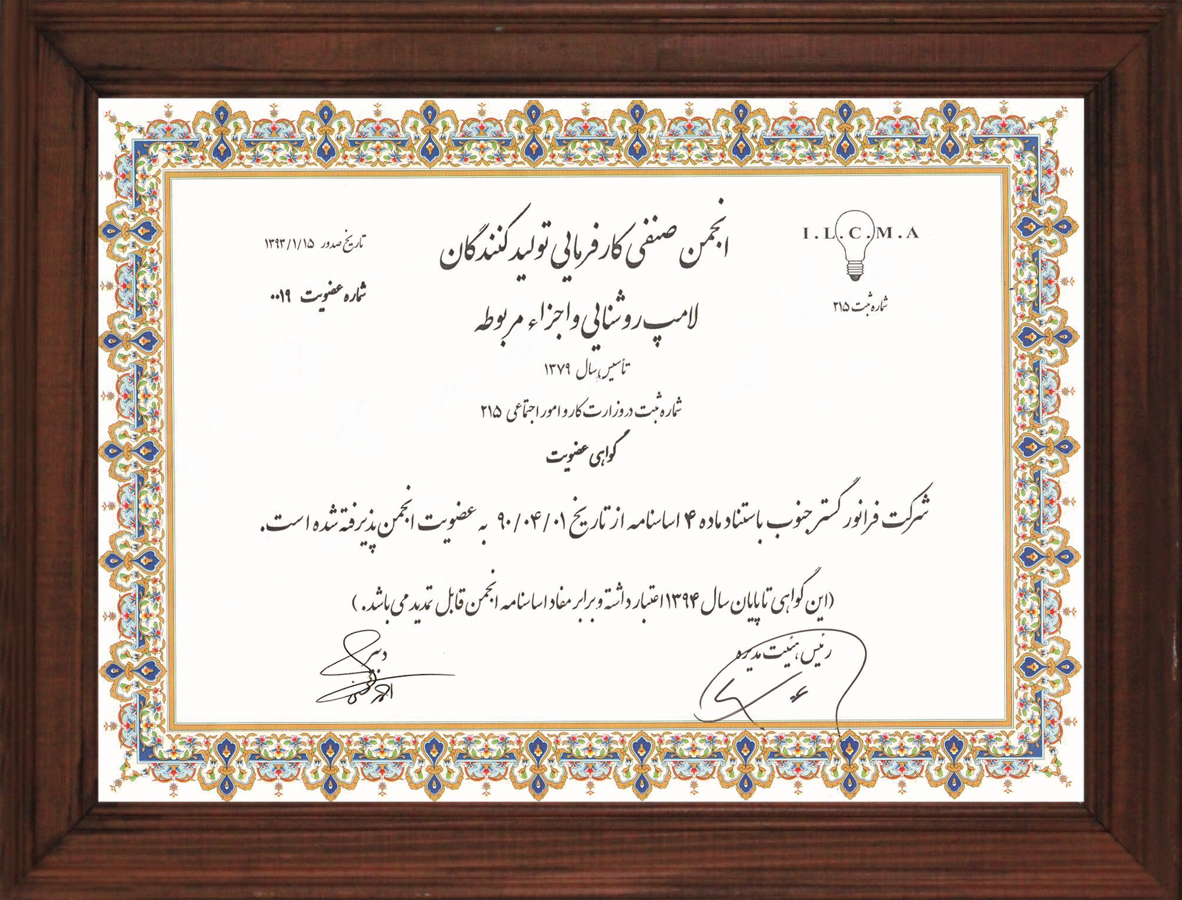 I.L.C.M.A
شماره ثبت ۲۱۵
انجمن صنفی کارفرمایی تولیدکنندگان
لامپ روشنایی و اجزاء مربوطه
تأسیس سال ۱۳۷۹
شماره ثبت در وزارت کار و امور اجتماعی ۲۱۵
گواهی عضویت
تاریخ صدور ۱۳۹۳/۱/۱۵
شماره عضویت ۰۰۱۹
شرکت فرانور گستر جنوب باستناد ماده ۴ اساسنامه از تاریخ ۹۰/۰۴/۰۱ به عضویت انجمن پذیرفته شده است.
(این گواهی تا پایان سال ۱۳۹۴ اعتبار داشته و برابر مفاد اساسنامه انجمن قابل تمدید می باشد.)
رئیس هیئت مدیره
دبیر